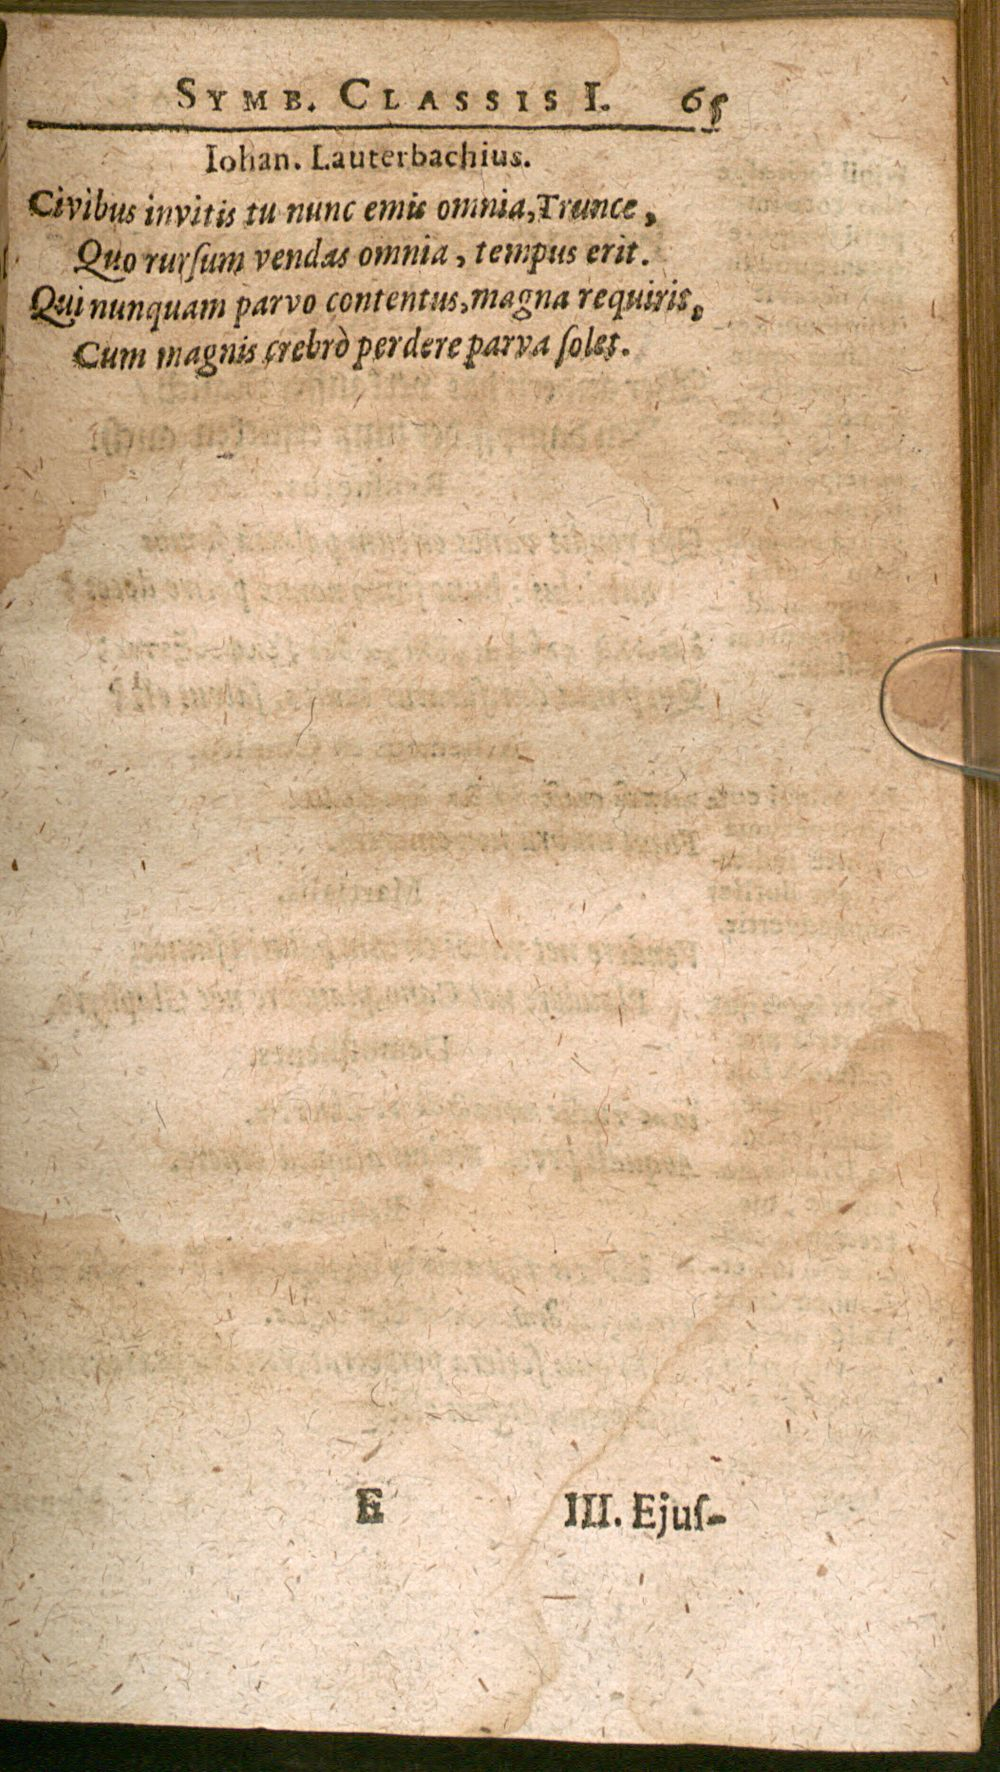 SYMB. CLASSIS I. 65
Iohan. Lauterbachius.
Civibus invitis tu nunc emis omnia, Trunce,
Quo rurſum vendas omnia, tempus erit.
Qui nunquam parvo contentus, magna requiris,
Cum magnis crebrò perdere parva ſoles.
E III. Ejuſ-